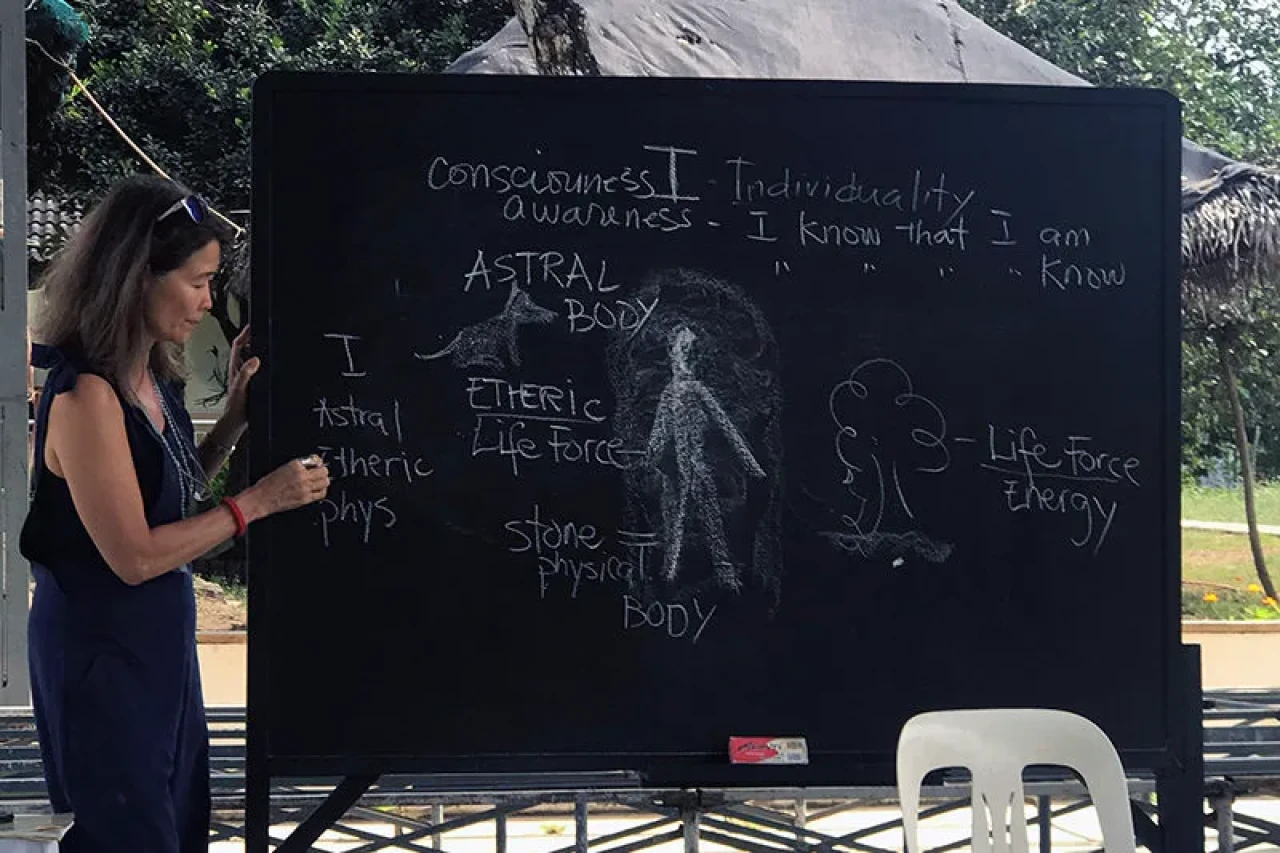 consciousness I - Individuality
awareness - I know that I am
" " " " Know
ASTRAL
BODY
I
Astral
Etheric
phys
ETHERIC
Life Force
stone =
physical
BODY
- Life Force
Energy